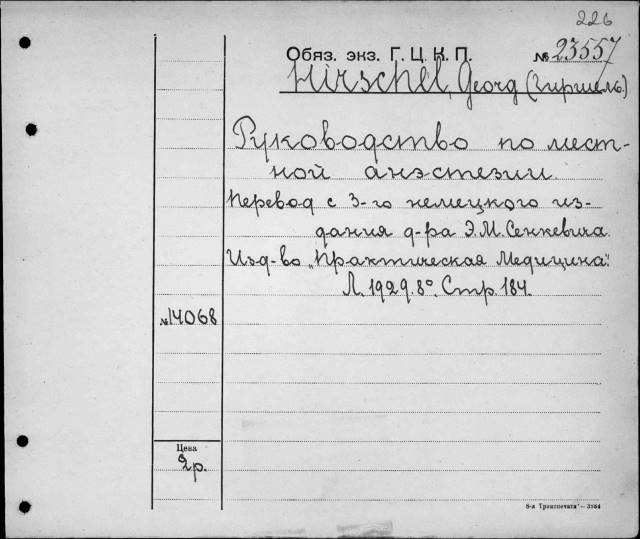 226
Обяз. экз. Г. Ц. К. П. № 23557
Hirschel, Georg (Гиршель.)
Руководство по мест-
ной анэстезии.
Перевод с 3-го немецкого из-
дания д-ра Э.М. Сенкевича.
Изд-во „Практическая Медицина".
Л. 1929. 8°. Стр. 184.
№14068
Цена
2р.
8-я Транспечати — 3584